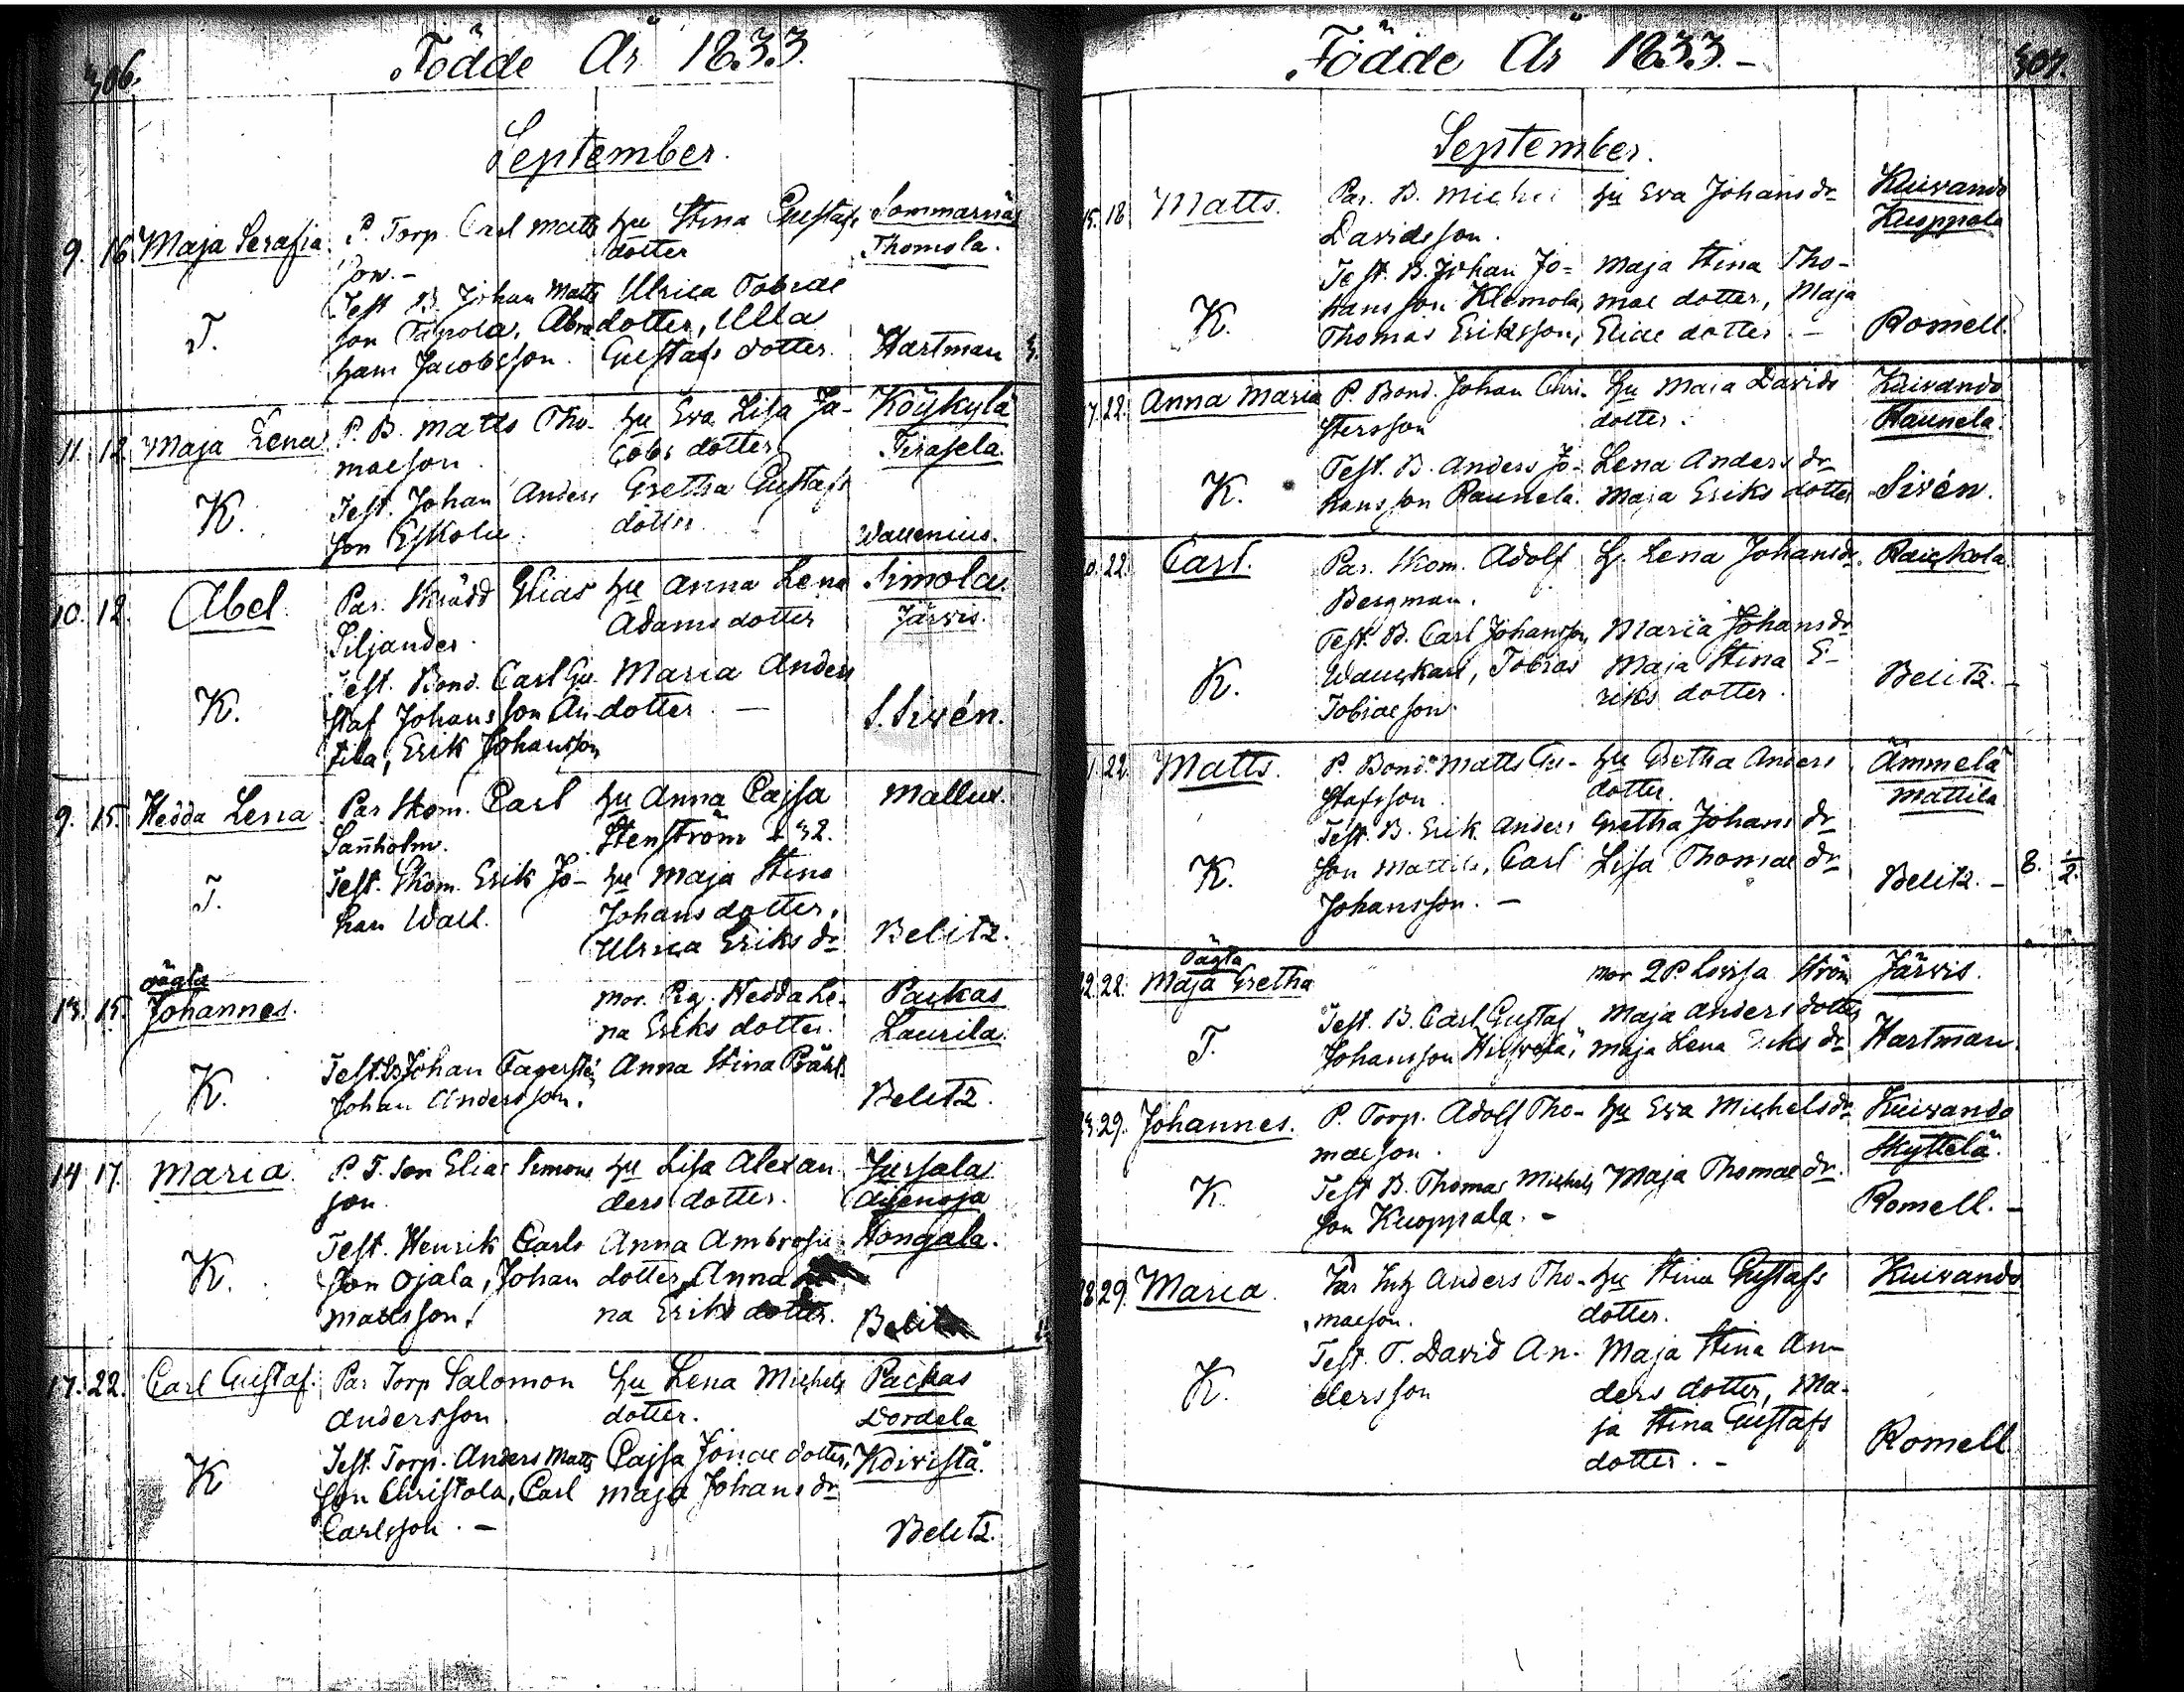 306.
Födde År 1833.
September.
9. 16. Maja Serafia. P. Torp. Carl Matts hu Stina Gustafs Sommarnäs
son.- dotter Thomola.
Test B. Johan Matts Ulrica Tobiae
T. son Tapola, Abra dotter, Ulla
ham Jacobsson. Gustafs dotter. Hartman
11. 12. Maja Lena P. B. Matts Tho- hu Eva Lisa Ja- Köykylä
maeson. cobs dotter
Test. Johan Anders Gretha Gustafs
K. son Eskola. dotter. Wallenius.
10. 12. Abel. Par. Skrädd Elias hu Anna Lena Simola
Siljander. Adams dotter Järvis.
Test. Bond. Carl Gu- Maria Anders
K. staf Johansson An- dotter. — S. Sirén.
tila, Erik Johansson
9. 15. Hedda Lena Par Skom. Carl hu Anna Cajsa Mallux.
Sanholm. Stenström + 32.
Test. Skom. Erik Jo- hu Maja Stina
T. han Wall. Johans dotter,
Ulrica Eriks dr Belitz.
oägta
13. 15. Johannes. Mor. Pig. Hedda Le- Packas
na Eriks dotter. Laurila
Test. Johan Fagersté, Anna Stina
K. Johan Andersson. Belitz.
14 17. Maria. P. T. Son Elias Simons hu Lisa Alexan Jursala
son. ders dotter.
Test. Henrik Carls Anna Ambrosii Hongala.
K. son Ojala, Johan dotter, Anna
Mattsson. na Eriks dotter. Belitz
17. 22. Carl Gustaf. Par Torp Salomon hu Lena Michels Packas
Andersson dotter. Dordela
Test. Torp. Anders Matts Cajsa Jonae dotter, Koivistä.
K son Christola, Carl Maja Johans dr
Carlsson. — Belitz.
307.
Födde År 1833.-
September.
15. 18 Matts. Par. B. Michel hu Eva Johans dr Kuivando
Davidsson. Kuoppala
Test. B. Johan Jo= Maja Stina Tho-
K. hansson Klemola, mae dotter, Maja
Thomas Eriksson, Eliae dotter. — Romell.
17. 22. Anna Maria P. Bond. Johan Chri- hu Maia Davids Kuivando
stersson dotter. Raunela.
Test. B. Anders Jo- Lena Anders dr
K. hansson Raunela. Maja Eriks dotter Sirén.
22. Carl. Par. Skom. Adolf h. Lena Johansdr. Rauskola
Bergman.
Test. B. Carl Johansson Maria Johans dr
Tobias Maja Stina E-
K. Tobiaeson. riks dotter. Belitz.-
22. Matts. P. Bond. Matts Gu- hu Gretha Anders Ämmelä
stafsson. dotter. Mattila
Test. B. Erik Anders Gretha Johans dr
K. son Mattila, Carl Lisa Thomae dr Belitz.- 8. 1/2.
Johansson. —
oägta
22. 22. Maja Gretha Mor Lovisa Ström Järvis.
Test. B. Carl Gustaf Maja Anders dotter
T. Johansson Maja Lena Eriks dr Hartman.
29. Johannes. P. Torp. Adolf Tho- hu Eva Michels dr Kuivando
maeson. Skyttelä.
Test B. Thomas Michels Maja Thomae dr.
K. son Kuoppala. - Romell.-
28 29. Maria. Par Anders Tho- hu Stina Gustafs Kuivando
maeson. dotter.
Test. T. David An- Maja Stina An-
K. dersson ders dotter, Ma-
ja Stina Gustafs
dotter. - Romell